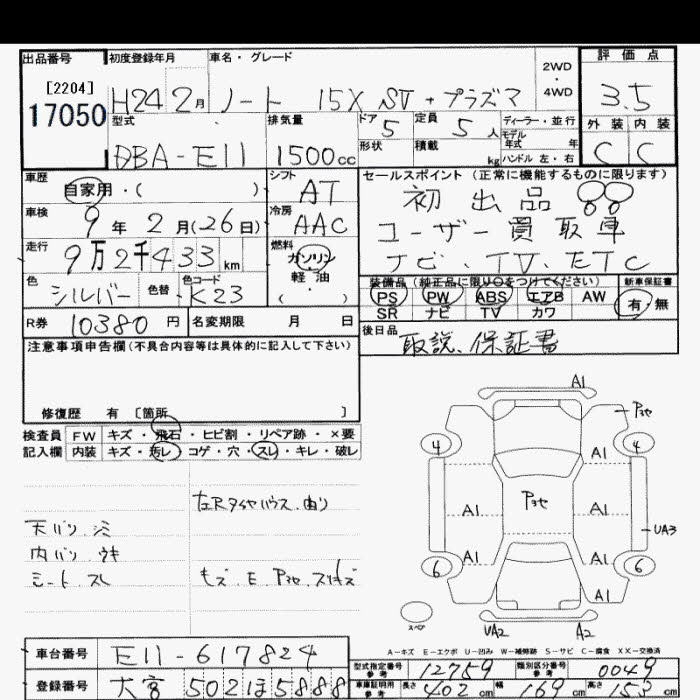 出品番号 初度登録年月 車名・グレード 評価点
[2204]
17050
H24 2月 ノート 15X SV + プラズマ 2WD・4WD 3.5
型式 排気量 ドア 定員 ディーラー・並行 外装 内装
DBA-E11 1500cc 5 5人 モデル年式 年 C C
形状 積載 kg ハンドル 左・右
車歴 シフト セールスポイント(正常に機能するものに限ります)
自家用・( ) AT 初出品
車検 冷房
9年2月(26日) AAC ユーザー買取車
走行 燃料
9万2千433km ガソリン ナビ、TV、ETC
軽油
( ・ )
色 色替 色コード 装備品(純正品に限り○をつけてください) 新車保証書
シルバー K23 PS PW ABS エアB AW 有・無
SR ナビ TV カワ
R券 10380円 名変期限 月 日 後日品
取説、保証書
注意事項申告欄(不具合内容等は具体的に記入して下さい)
修復歴 有 〔箇所 〕
検査員 FW キズ・飛石・ヒビ割・リペア跡・×要
記入欄 内装 キズ・汚レ・コゲ・穴・スレ・キレ・破レ
左Rタイヤハウス 曲り
天バリ シミ
内バリ ウキ
シート スレ
キズ・E・
A1
4 4
A1
A1 A1 A1
UA3
A1 A1
6 6
スペア
UA2 A2
A-キズ E-エクボ U-凹み W-補修跡 S-サビ C-腐食 XX-交換済
車台番号 E11-617824
型式指定番号 参考 12759 類別区分番号 参考 0049
登録番号 大宮 502ほ5888
車庫証明用 参考 長さ 402cm 幅 169cm 高さ 153cm